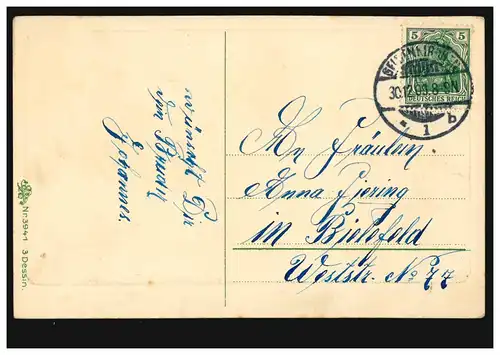 wünscht Dir
Dein Bruder
Johannes
Nr. 3941 3 Dessin.
5 5
DEUTSCHES REICH
GELSENKIRCHEN
30.12.09. 8-9N
* 1 b
An Fräulein
Anna
in Bielefeld
Weststr. No 77